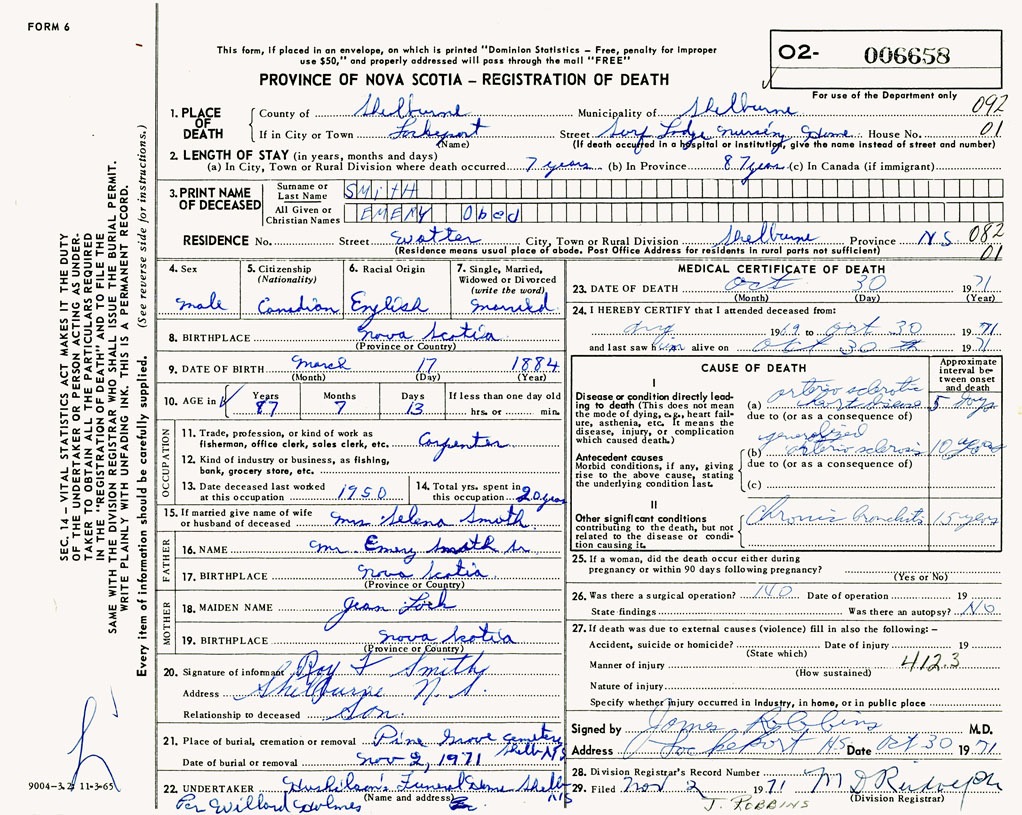 FORM 6
This form, if placed in an envelope, on which is printed "Dominion Statistics – Free, penalty for improper
use $50," and properly addressed will pass through the mail "FREE"
O2- 006658
PROVINCE OF NOVA SCOTIA – REGISTRATION OF DEATH
For use of the Department only
092
01
1. PLACE OF DEATH
County of Shelburne Municipality of Shelburne
If in City or Town Lockeport Street Surf Lodge Nursing Home House No.
(Name) (If death occurred in a hospital or institution, give the name instead of street and number)
2. LENGTH OF STAY (in years, months and days)
(a) In City, Town or Rural Division where death occurred 7 years (b) In Province 87 years (c) In Canada (if immigrant)
3. PRINT NAME OF DECEASED
Surname or Last Name SMITH
All Given or Christian Names EMERY Obed
RESIDENCE No. Street Water City, Town or Rural Division Shelburne Province N.S. 082
(Residence means usual place of abode. Post Office Address for residents in rural parts not sufficient) 01
4. Sex male
5. Citizenship (Nationality) Canadian
6. Racial Origin English
7. Single, Married, Widowed or Divorced (write the word) Married
8. BIRTHPLACE Nova Scotia
(Province or Country)
9. DATE OF BIRTH March 17 1884
(Month) (Day) (Year)
10. AGE in Years 87 Months 7 Days 13 If less than one day old hrs. or min.
OCCUPATION
11. Trade, profession, or kind of work as fisherman, office clerk, sales clerk, etc. Carpenter
12. Kind of industry or business, as fishing, bank, grocery store, etc.
13. Date deceased last worked at this occupation 1950
14. Total yrs. spent in this occupation 20 years
15. If married give name of wife or husband of deceased Mrs Selena Smith
FATHER
16. NAME Mr. Emery Smith Sr
17. BIRTHPLACE Nova Scotia
(Province or Country)
MOTHER
18. MAIDEN NAME Jean Lock
19. BIRTHPLACE Nova Scotia
(Province or Country)
20. Signature of informant Roy F Smith
Address Shelburne N.S.
Relationship to deceased Son.
21. Place of burial, cremation or removal Pine Grove Cemetery Shelb NS
Date of burial or removal Nov 2, 1971
22. UNDERTAKER Huskilson's Funeral Home Shelb NS
(Name and address)
Per Willard Holmes
MEDICAL CERTIFICATE OF DEATH
23. DATE OF DEATH Oct 30 1971
(Month) (Day) (Year)
24. I HEREBY CERTIFY that I attended deceased from:
1969 to Oct 30 1971
and last saw him alive on Oct 30 th 1971
CAUSE OF DEATH
Approximate interval between onset and death
I
Disease or condition directly leading to death (This does not mean the mode of dying, e.g., heart failure, asthenia, etc. It means the disease, injury, or complication which caused death.)
(a) arterio sclerotic heart disease 5 days
due to (or as a consequence of)
Antecedent causes
Morbid conditions, if any, giving rise to the above cause, stating the underlying condition last.
(b) generalized arterio sclerosis 10 years
due to (or as a consequence of)
(c)
II
Other significant conditions
contributing to the death, but not related to the disease or condition causing it.
Chronic bronchitis 15 years
25. If a woman, did the death occur either during
pregnancy or within 90 days following pregnancy?
(Yes or No)
26. Was there a surgical operation? NO Date of operation 19
State findings Was there an autopsy? NO
27. If death was due to external causes (violence) fill in also the following: –
Accident, suicide or homicide? Date of injury 19
(State which)
Manner of injury 412.3
(How sustained)
Nature of injury
Specify whether injury occurred in industry, in home, or in public place
Signed by James Robbins M.D.
Address Lockeport NS Date Oct 30 1971
28. Division Registrar's Record Number
29. Filed Nov 2 1971
(Division Registrar)
J. ROBBINS
SEC. 14 – VITAL STATISTICS ACT MAKES IT THE DUTY
OF THE UNDERTAKER OR PERSON ACTING AS UNDER-
TAKER TO OBTAIN ALL THE PARTICULARS REQUIRED
IN THE "REGISTRATION OF DEATH" AND TO FILE THE
SAME WITH THE DIVISION REGISTRAR WHO SHALL ISSUE THE BURIAL PERMIT.
WRITE PLAINLY WITH UNFADING INK. THIS IS A PERMANENT RECORD.
Every item of information should be carefully supplied. (See reverse side for instructions.)
9004-3.2 11-3-65